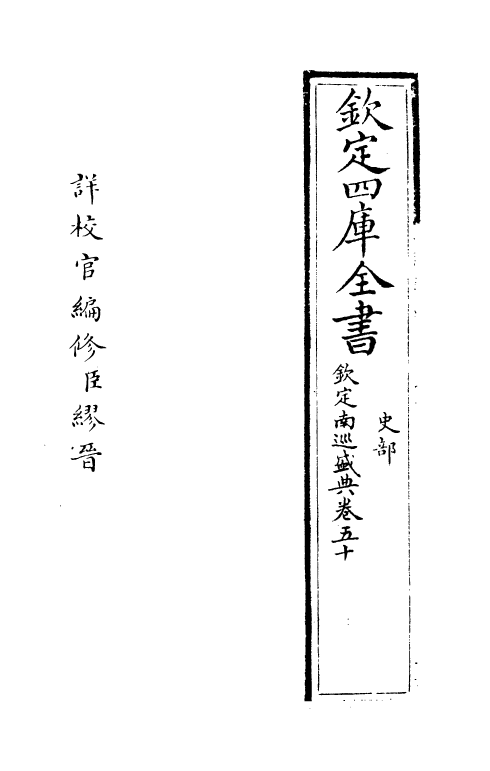 欽定四庫全書
史部
欽定南巡盛典卷五十
詳校官編修臣繆晉